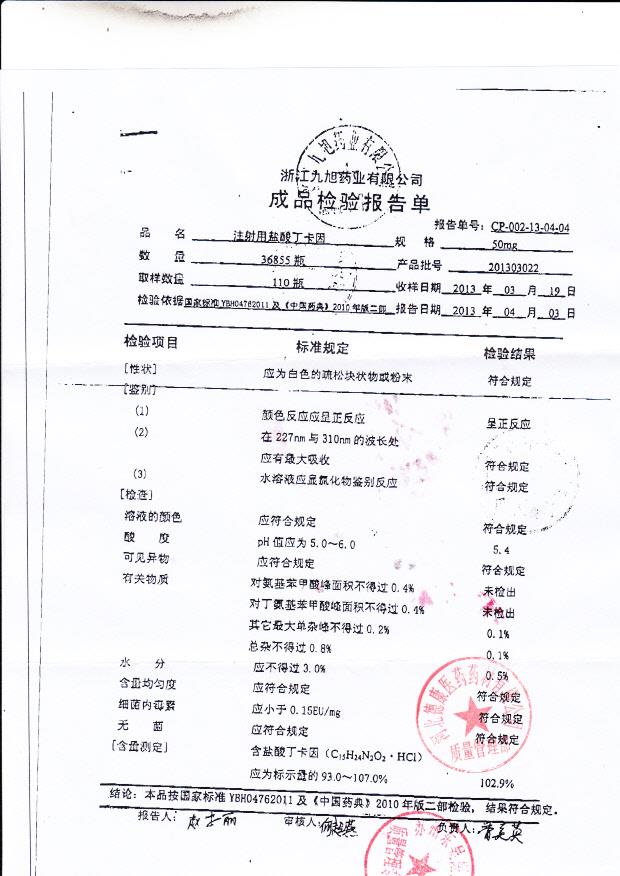 九旭药业有限公
浙江九旭药业有限公司
成品检验报告单
报告单号：CP-002-13-04-04
品 名 注射用盐酸丁卡因 规 格 50mg
数 量 36855 瓶 产品批号 201303022
取样数量 110 瓶 收样日期 2013 年 03 月 19 日
检验依据 国家标准 YBH04762011 及《中国药典》2010 年版二部 报告日期 2013 年 04 月 03 日
检验项目 标准规定 检验结果
[性状] 应为白色的疏松块状物或粉末 符合规定
[鉴别]
(1) 颜色反应应呈正反应 呈正反应
(2) 在 227nm 与 310nm 的波长处
应有最大吸收 符合规定
(3) 水溶液应显氯化物鉴别反应 符合规定
[检查]
溶液的颜色 应符合规定 符合规定
酸 度 pH 值应为 5.0～6.0 5.4
可见异物 应符合规定 符合规定
有关物质 对氨基苯甲酸峰面积不得过 0.4% 未检出
对丁氨基苯甲酸峰面积不得过 0.4% 未检出
其它最大单杂峰不得过 0.2% 0.1%
总杂不得过 0.8% 0.1%
水 分 应不得过 3.0% 0.5%
含量均匀度 应符合规定 符合规定
细菌内毒素 应小于 0.15EU/mg 符合规定
无 菌 应符合规定 符合规定
[含量测定] 含盐酸丁卡因（C₁₅H₂₄N₂O₂・HCl）
应为标示量的 93.0～107.0% 102.9%
结论：本品按国家标准 YBH04762011 及《中国药典》2010 年版二部检验，结果符合规定。
报告人： 审核人： 负责人：
河北德康医药药材有限公司
质量管理部